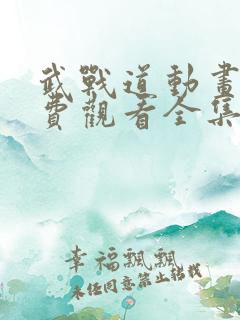 武戰道動畫
費觀看全集
幸福飄飄
未經同意禁止轉載